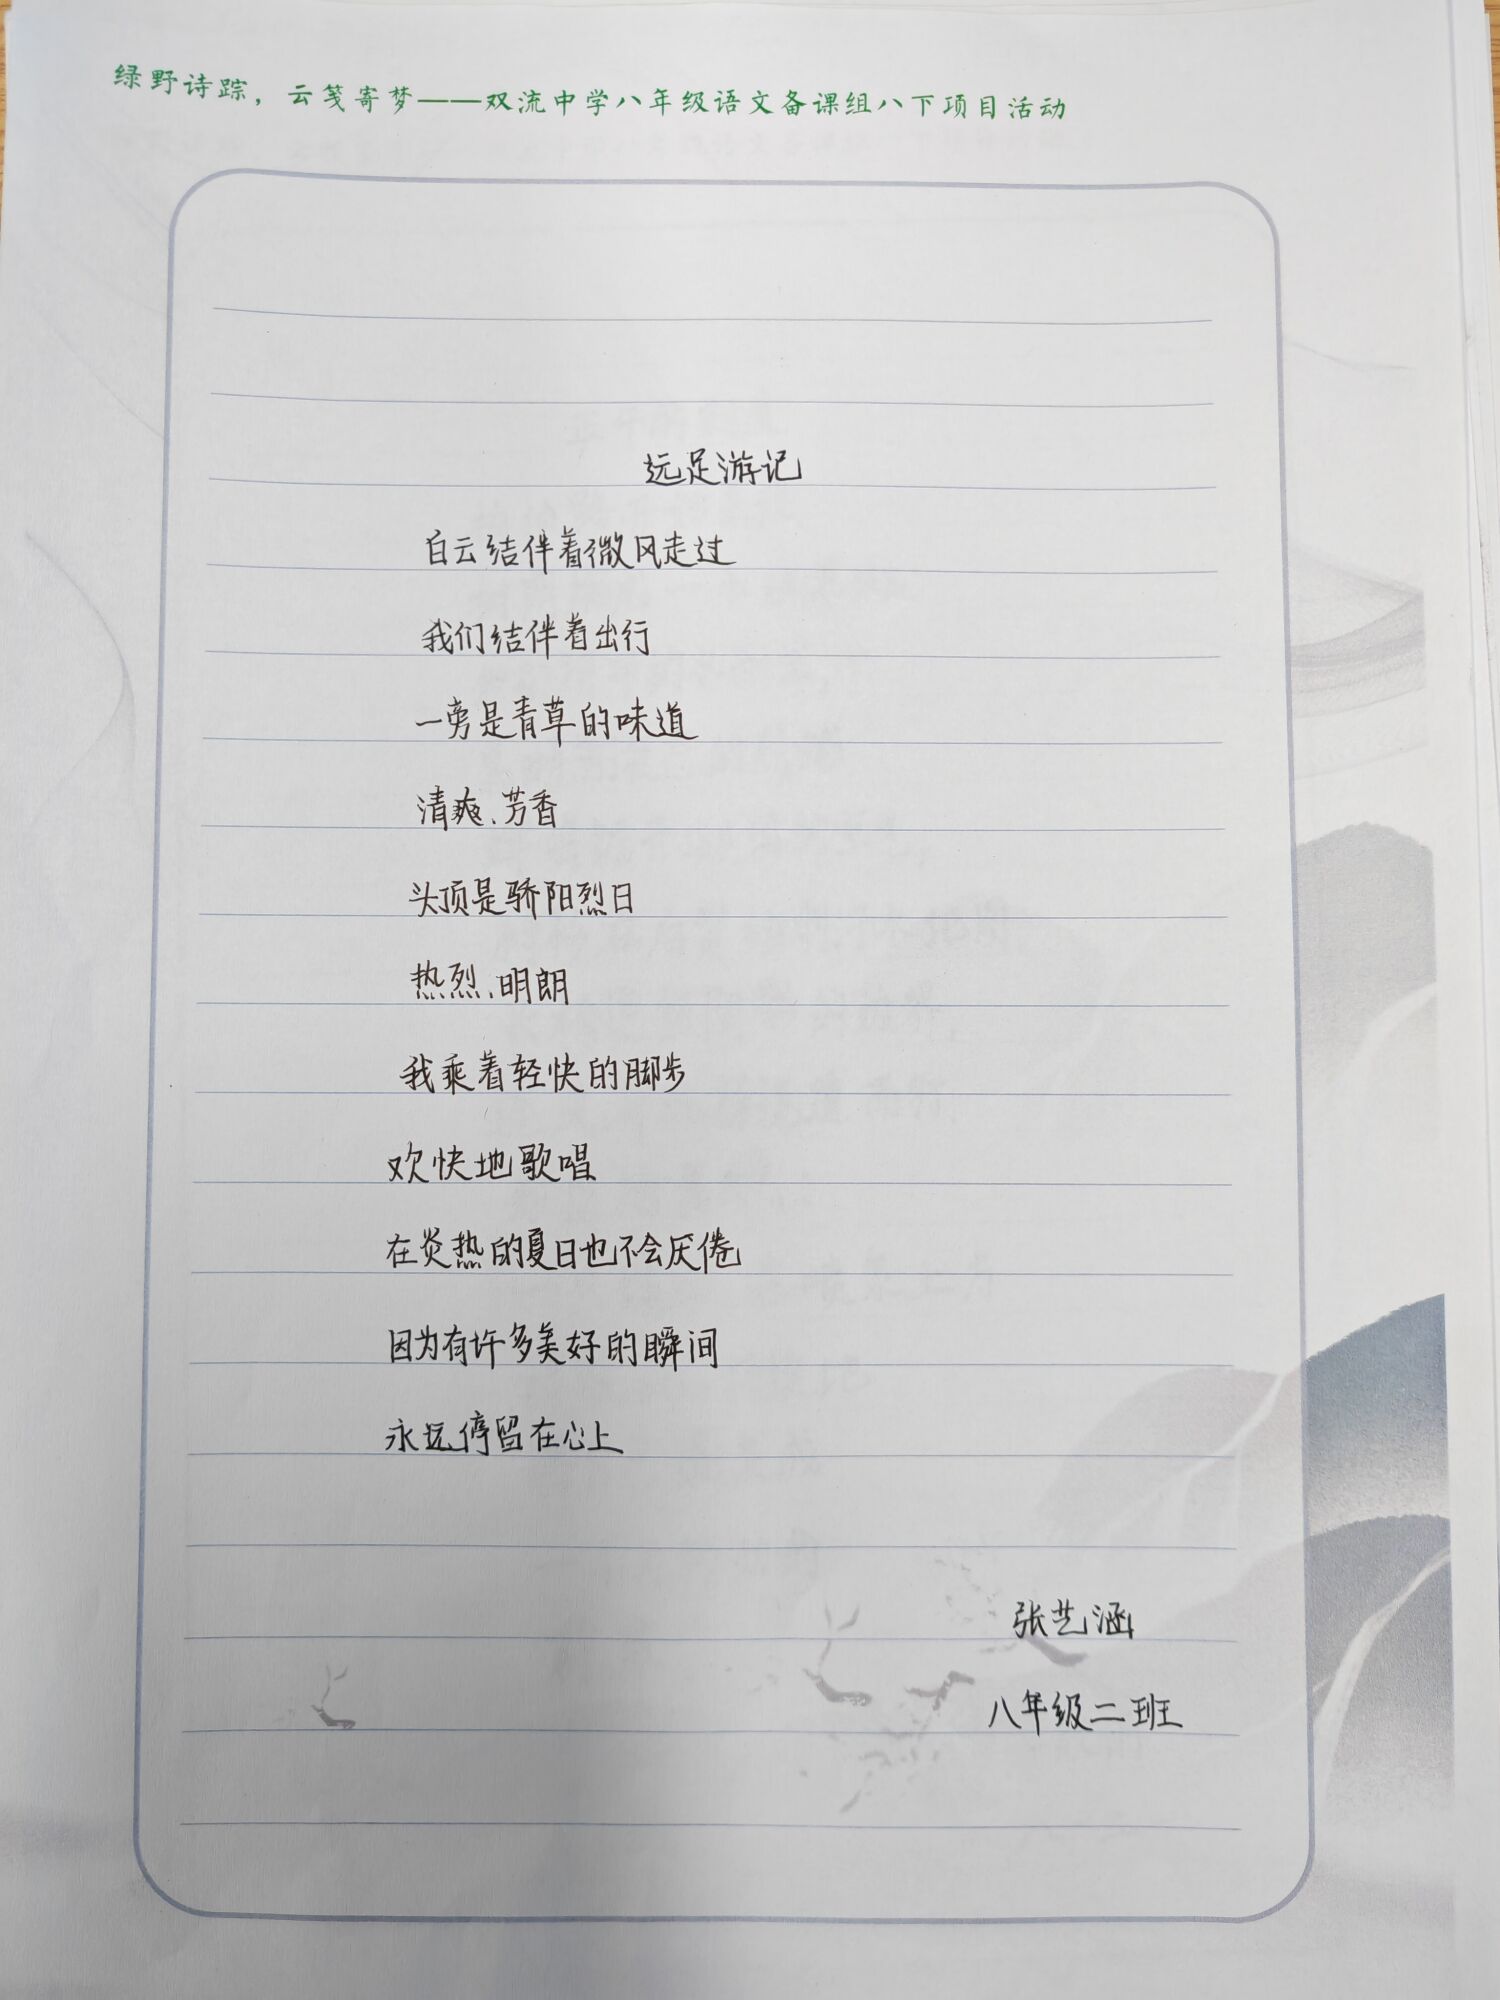 绿野诗踪，云笺寄梦——双流中学八年级语文备课组八下项目活动
远足游记
白云结伴着微风走过
我们结伴着出行
一旁是青草的味道
清爽、芳香
头顶是骄阳烈日
热烈、明朗
我乘着轻快的脚步
欢快地歌唱
在炎热的夏日也不会厌倦
因为有许多美好的瞬间
永远停留在心上
张艺涵
八年级二班